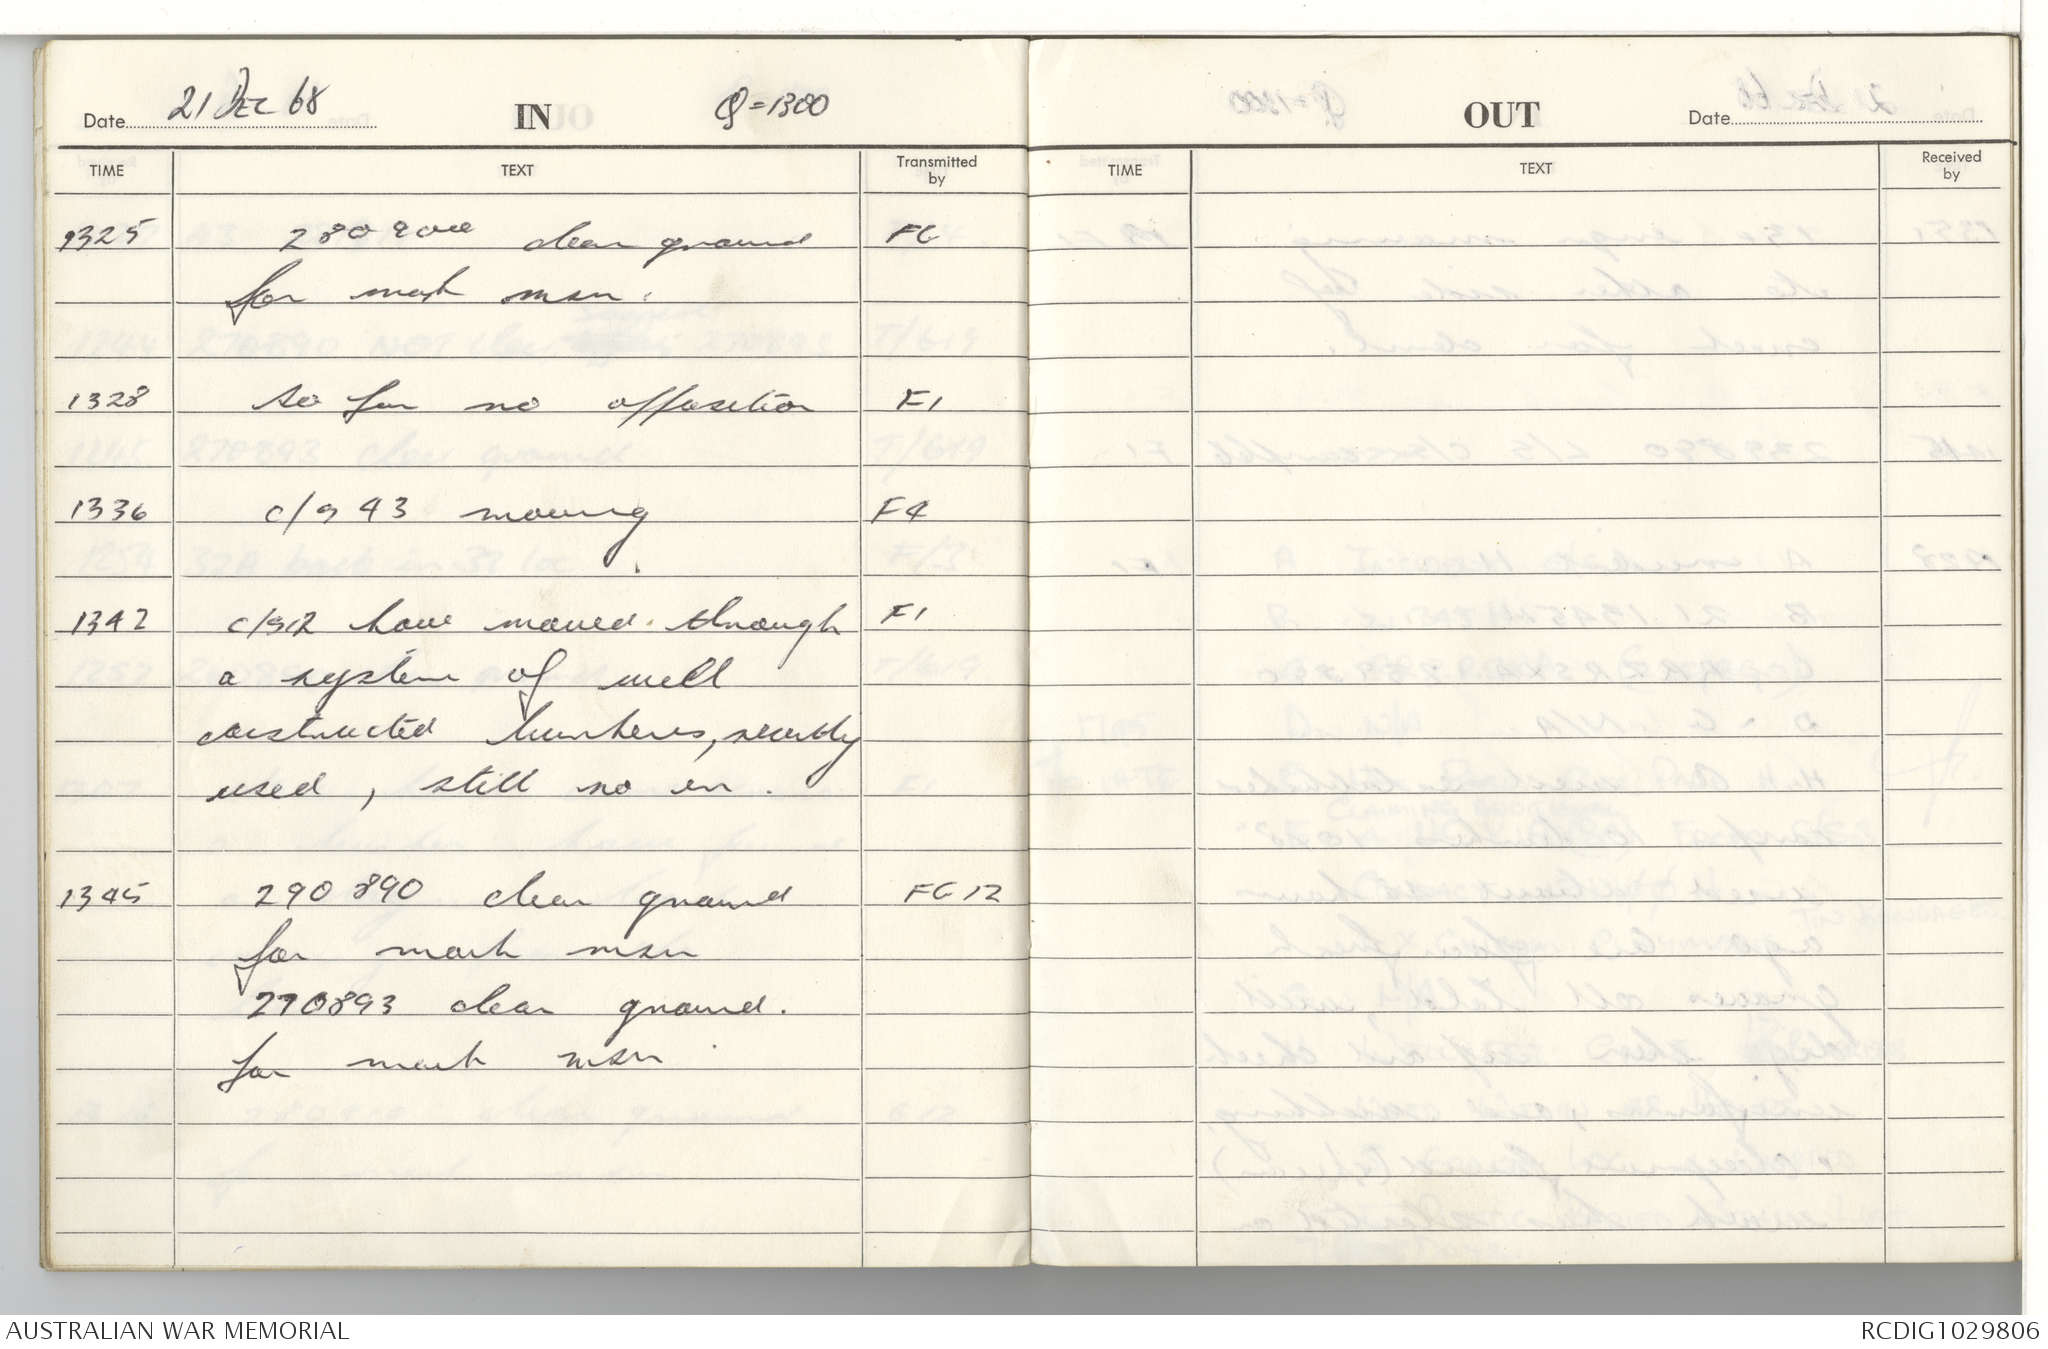 Date 21 DEC 68 IN Q = 1300
TIME TEXT Transmitted by
1325 280900 clear ground FG
for mark msn.
1328 so far no opposition F1
1336 c/s 43 moving F4
1342 c/s 12 have moved through F1
a system of well
constructed bunkers, recently
used, still no en.
1345 290890 clear ground FG 12
for mark msn
270893 clear ground.
for mark msn
OUT Date
TIME TEXT Received by
AUSTRALIAN WAR MEMORIAL
RCDIG1029806